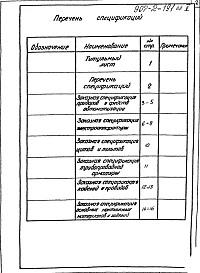 907-2-191
Перечень спецификаций
Обозначение Наименование №№ стр. Примечание
Титульный
лист 1
Перечень
спецификаций 2
Заказная спецификация
приборов и средств
автоматизации 3-5
Заказная спецификация
электроаппаратуры 6-9
Заказная спецификация
щитов и пультов 10
Заказная спецификация
трубопроводной
арматуры 11
Заказная спецификация
кабелей и проводов 12-13
Заказная спецификация
основных монтажных
материалов и изделий 14-16